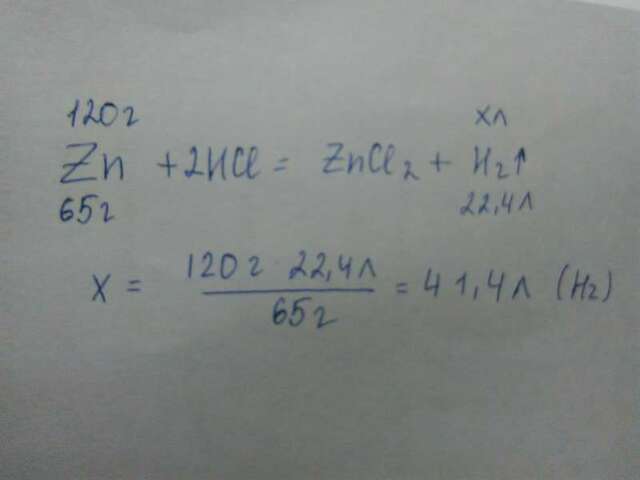 120г хл
Zn + 2HCl = ZnCl₂ + H₂↑
65г 22,4л
X = 120г 22,4л / 65г = 41,4л (H₂)